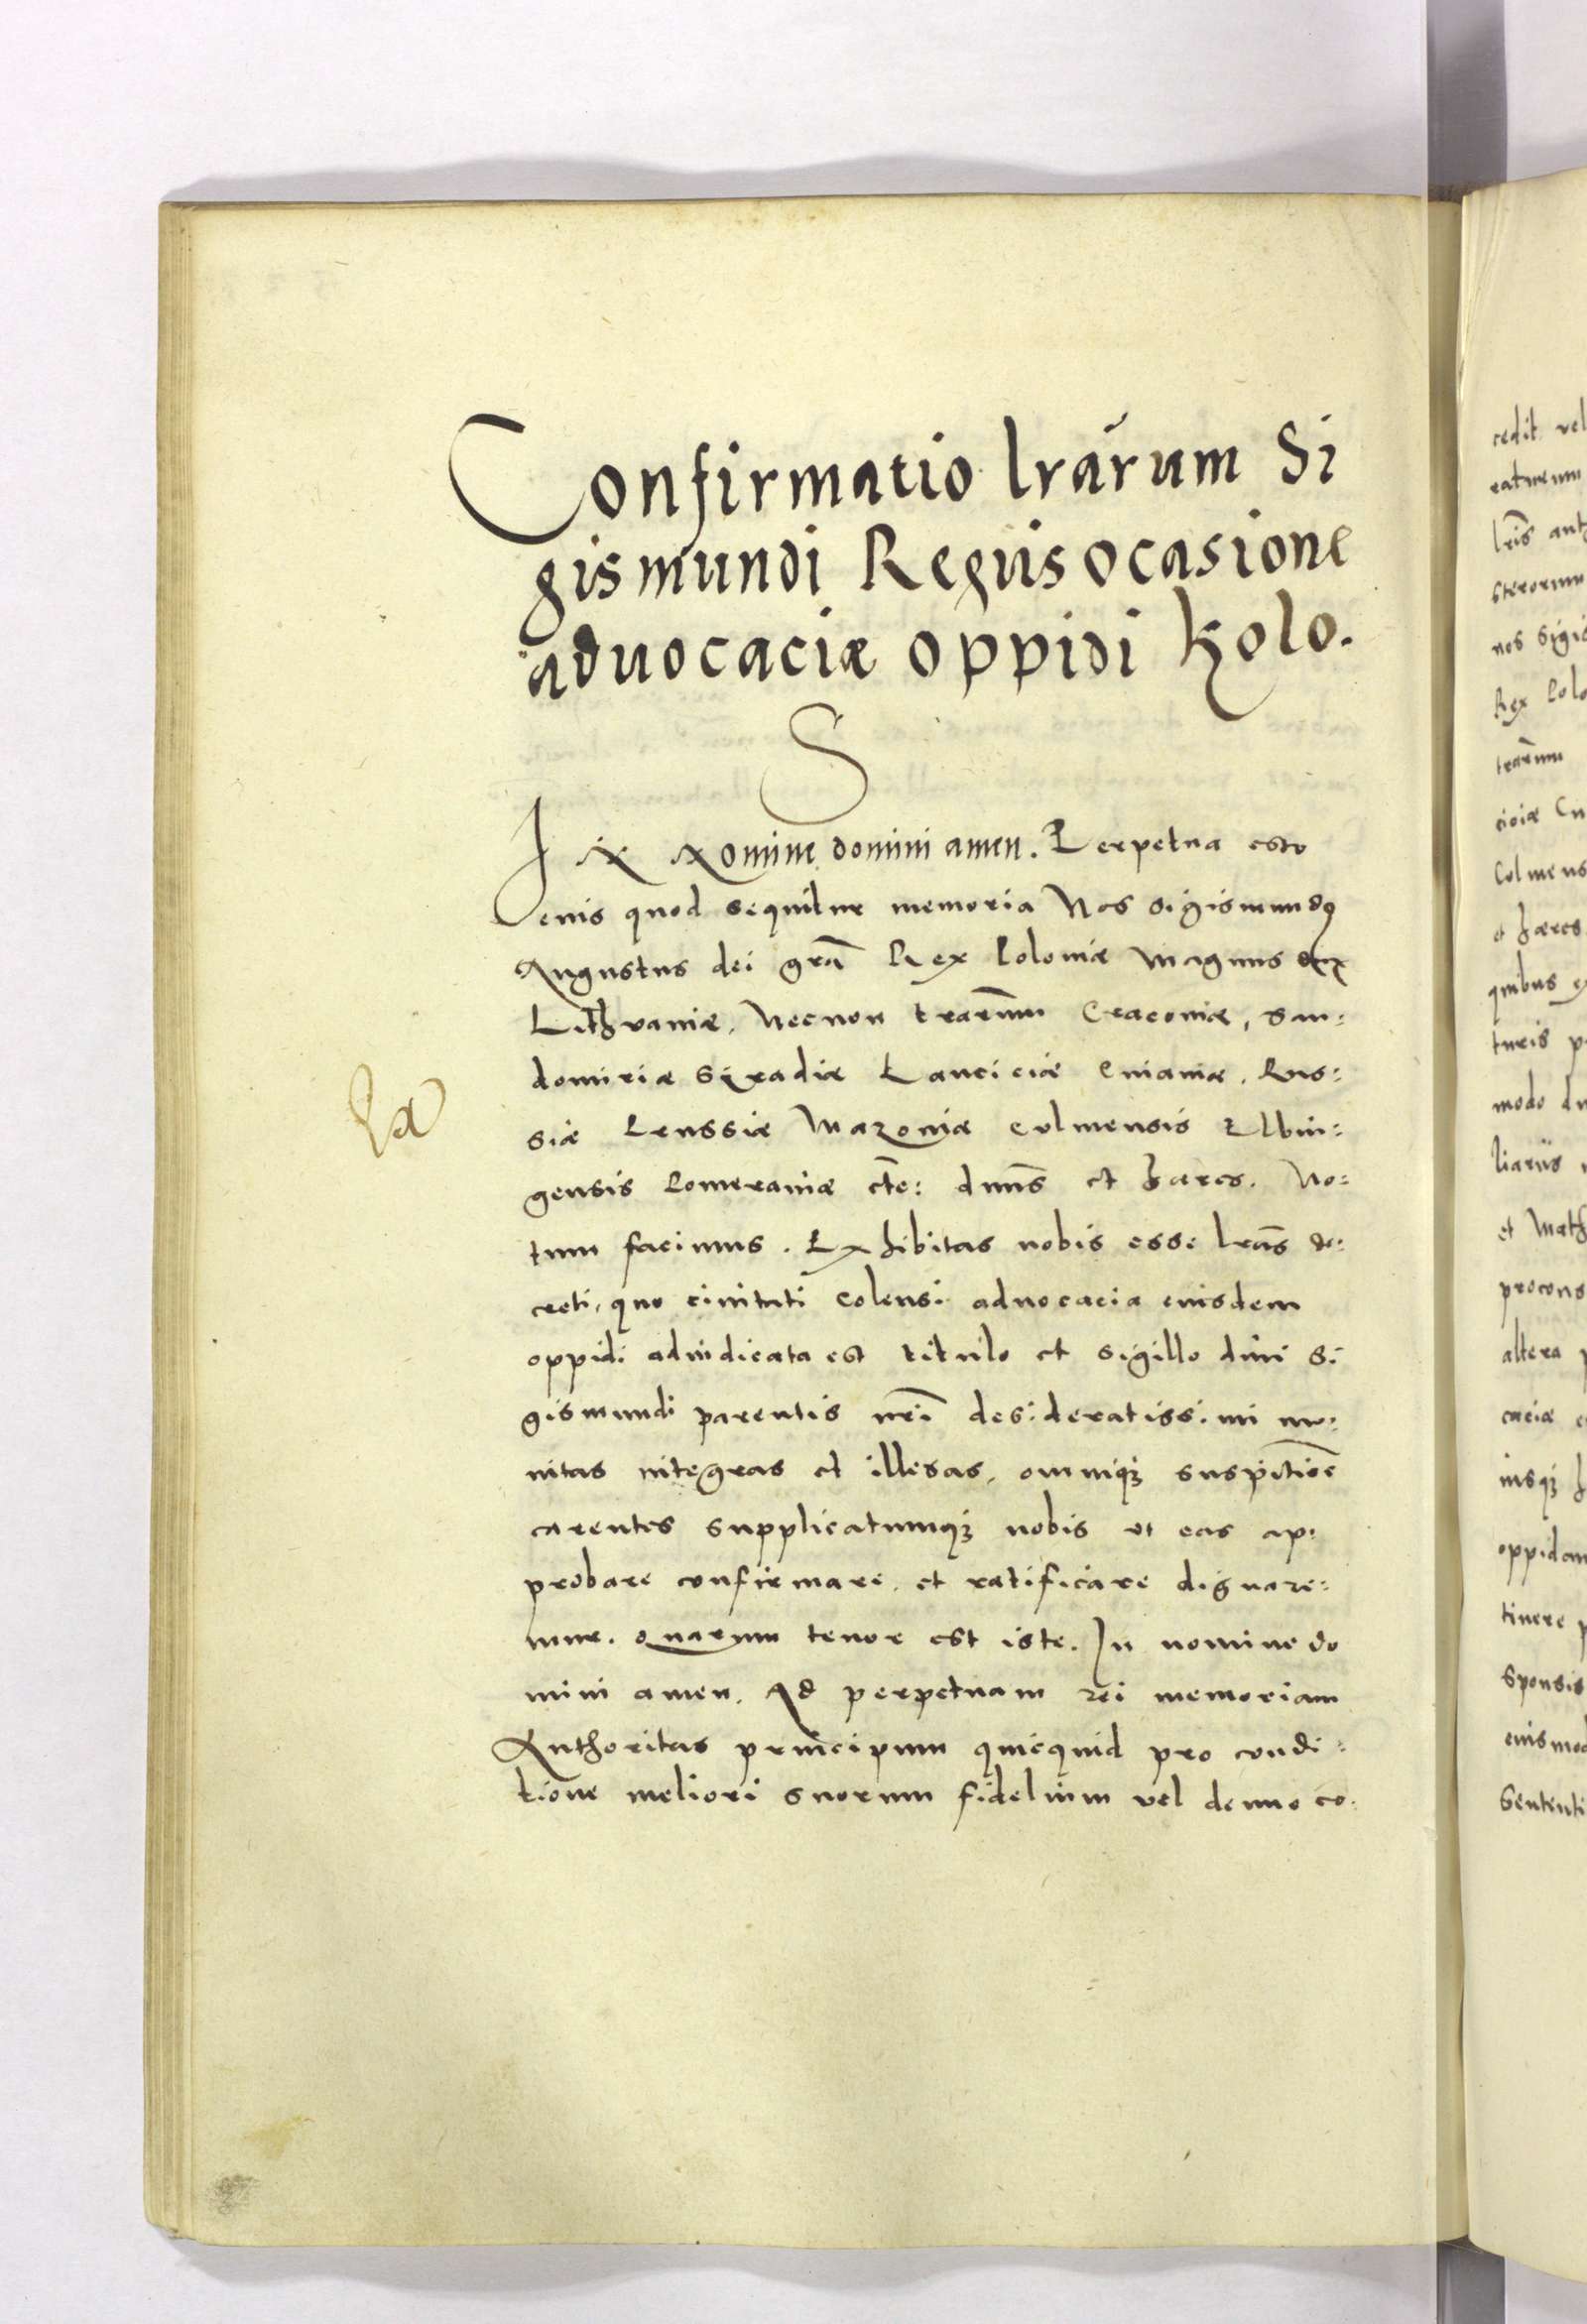 Confirmatio lrarum Si
gismundi Regis ocasione
aduocaciæ oppidi Kolo.
S
In Nomine domini amen. Perpetua esto
eius quod sequitur memoria Nos Sigismundus
Augustus dei gra Rex Poloniæ Magnus dux
Lithvaniæ, Necnon trarum Cracoviæ, San:
domiriæ Syradiæ Lanciciæ Cuiaviæ, Rus:
siæ Prussiæ Mazoviæ Culmensis Elbin:
gensis Pomeraniæ etc: dnns et hæres. No:
tum facimus. Exhibitas nobis esse lras de:
creti, quo civitati Colensi advocacia eiusdem
oppidi adiudicata est titulo et sigillo dni Si
gismundi parentis nri desideratissimi mu:
nitas integras et illesas, omnique suspictione
carentes supplicatumque nobis ut eas ap:
probare confirmare, et ratificare dignare:
mur. Quarum tenor est iste. In nomine do
mini amen. Ad perpetuam rei memoriam
Authoritas principum quicquid pro condi:
tione meliori suorum fidelium vel denuo co:
cedit vel
lris
nos Sigis
Rex Polo
trarum
Colmens
et hæres
quibus
turis
modo
liariis
et Math
procons
altera
caciæ
oppidan
tinere
sponsis
eiusmod
Sententi